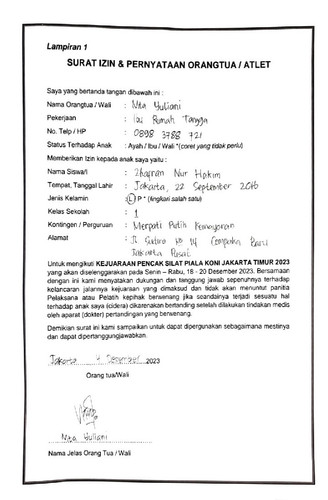 Lampiran 1
SURAT IZIN & PERNYATAAN ORANGTUA / ATLET
Saya yang bertanda tangan dibawah ini :
Nama Orangtua / Wali : Nita Yuliani
Pekerjaan : Ibu Rumah Tangga
No. Telp / HP : 0898 3788 721
Status Terhadap Anak : Ayah / Ibu / Wali *(coret yang tidak perlu)
Memberikan Izin kepada anak saya yaitu :
Nama Siswa/i : Zhafran Nur Hakim
Tempat, Tanggal Lahir : Jakarta, 22 September 2016
Jenis Kelamin : L / P * (lingkari salah satu)
Kelas Sekolah : 1
Kontingen / Perguruan : Merpati Putih Kemayoran
Alamat : Jl 14 Cempaka Baru
Jakarta Pusat
Untuk mengikuti KEJUARAAN PENCAK SILAT PIALA KONI JAKARTA TIMUR 2023
yang akan diselenggarakan pada Senin – Rabu, 18 - 20 Desember 2023. Bersamaan
dengan ini kami menyatakan dukungan dan tanggung jawab sepenuhnya terhadap
kelancaran jalannya kejuaraan yang dimaksud dan tidak akan menuntut panitia
Pelaksana atau Pelatih kepihak berwenang jika seandainya terjadi sesuatu hal
terhadap anak saya (cidera) dikarenakan bertanding setelah dilakukan tindakan medis
oleh aparat (dokter) pertandingan yang berwenang.
Demikian surat ini kami sampaikan untuk dapat dipergunakan sebagaimana mestinya
dan dapat dipertanggungjawabkan.
Jakarta 9 Desember 2023
Orang tua/Wali
Nita Yuliani
Nama Jelas Orang Tua / Wali